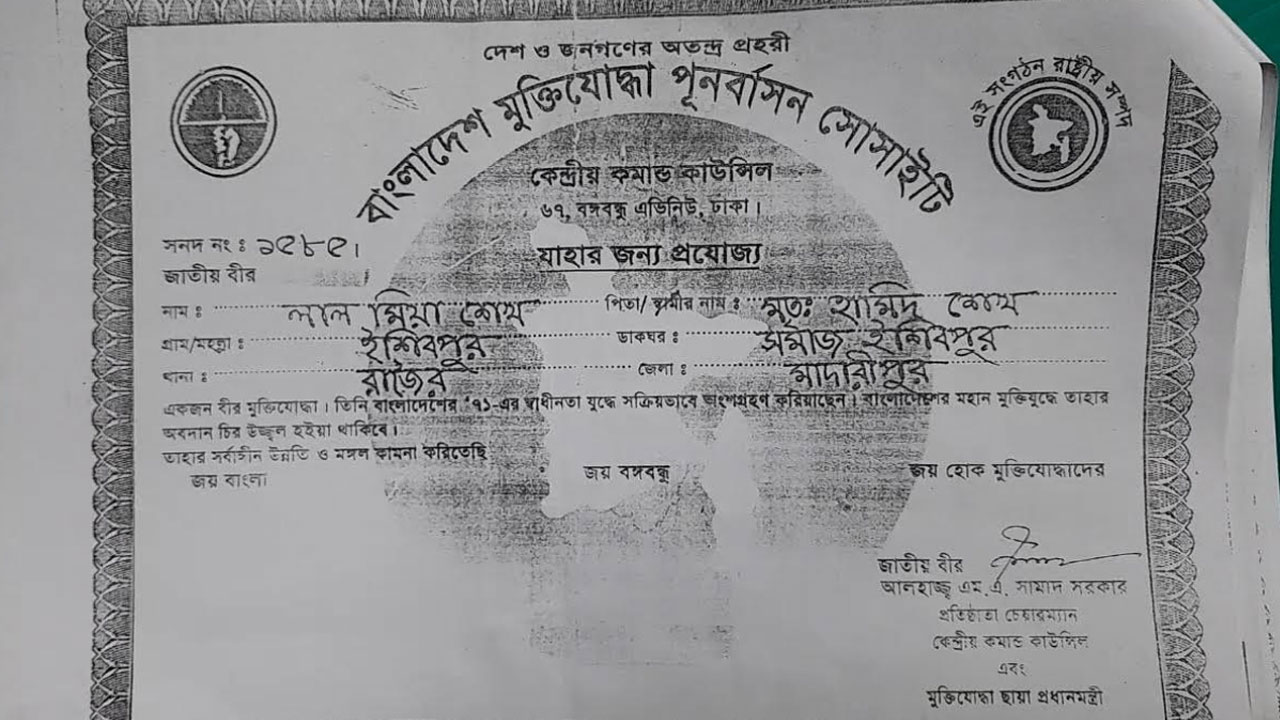 দেশ ও জনগণের অতন্দ্র প্রহরী
বাংলাদেশ মুক্তিযোদ্ধা পূনর্বাসন সোসাইটি
এই সংগঠন রাষ্ট্রীয় সম্পদ
কেন্দ্রীয় কমান্ড কাউন্সিল
৬৭, বঙ্গবন্ধু এভিনিউ, ঢাকা।
সনদ নং : ১৫৮৫।
যাহার জন্য প্রযোজ্য
জাতীয় বীর
নাম : লাল মিয়া শেখ পিতা/স্বামীর নাম : মৃতঃ হামিদ শেখ
গ্রাম/মহল্লা : ইশিবপুর ডাকঘর : সমাজ ইশিবপুর
থানা : রাজৈর জেলা : মাদারীপুর
একজন বীর মুক্তিযোদ্ধা। তিনি বাংলাদেশের '৭১-এর স্বাধীনতা যুদ্ধে সক্রিয়ভাবে অংশগ্রহণ করিয়াছেন। বাংলাদেশের মহান মুক্তিযুদ্ধে তাহার
অবদান চির উজ্জ্বল হইয়া থাকিবে।
তাহার সর্বাঙ্গীন উন্নতি ও মঙ্গল কামনা করিতেছি
জয় বাংলা জয় বঙ্গবন্ধু জয় হোক মুক্তিযোদ্ধাদের
জাতীয় বীর
আলহাজ্জ্ব এম.এ. সামাদ সরকার
প্রতিষ্ঠাতা চেয়ারম্যান
কেন্দ্রীয় কমান্ড কাউন্সিল
এবং
মুক্তিযোদ্ধা ছায়া প্রধানমন্ত্রী